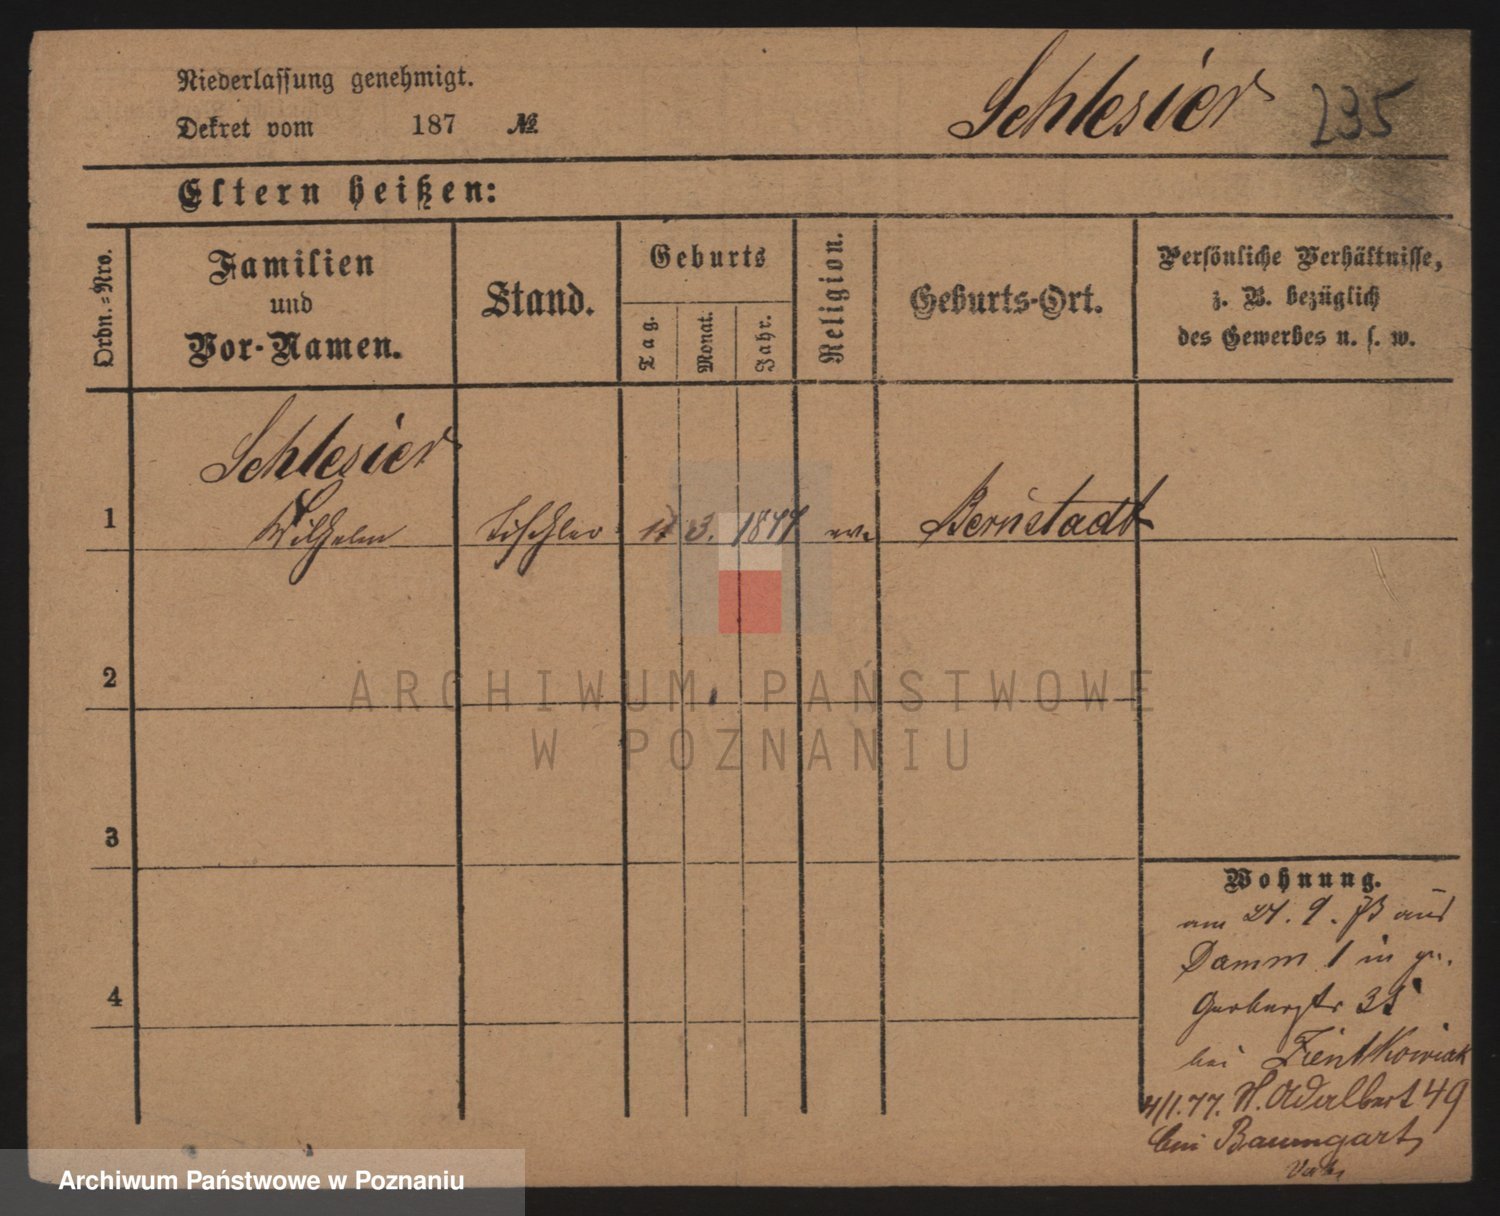 Niederlassung genehmigt.
Schlesier 235
Dekret vom 187 №
Eltern heißen:
Ordn.=Nro.
Familien
und
Vor-Namen.
Stand.
Geburts
Tag.
Monat.
Jahr.
Religion.
Geburts-Ort.
Persönliche Verhältnisse,
z. B. bezüglich
des Gewerbes u. s. w.
Schlesier
1 Wilhelm Tischler 3. ev. Bernstadt
2
ARCHIWUM PAŃSTWOWE
W POZNANIU
3
Wohnung.
am 9. aus
Damm 1 in
Gerberstr
bei
4/1.77. St. Adalbert 49
bei Baumgart
4
Archiwum Państwowe w Poznaniu